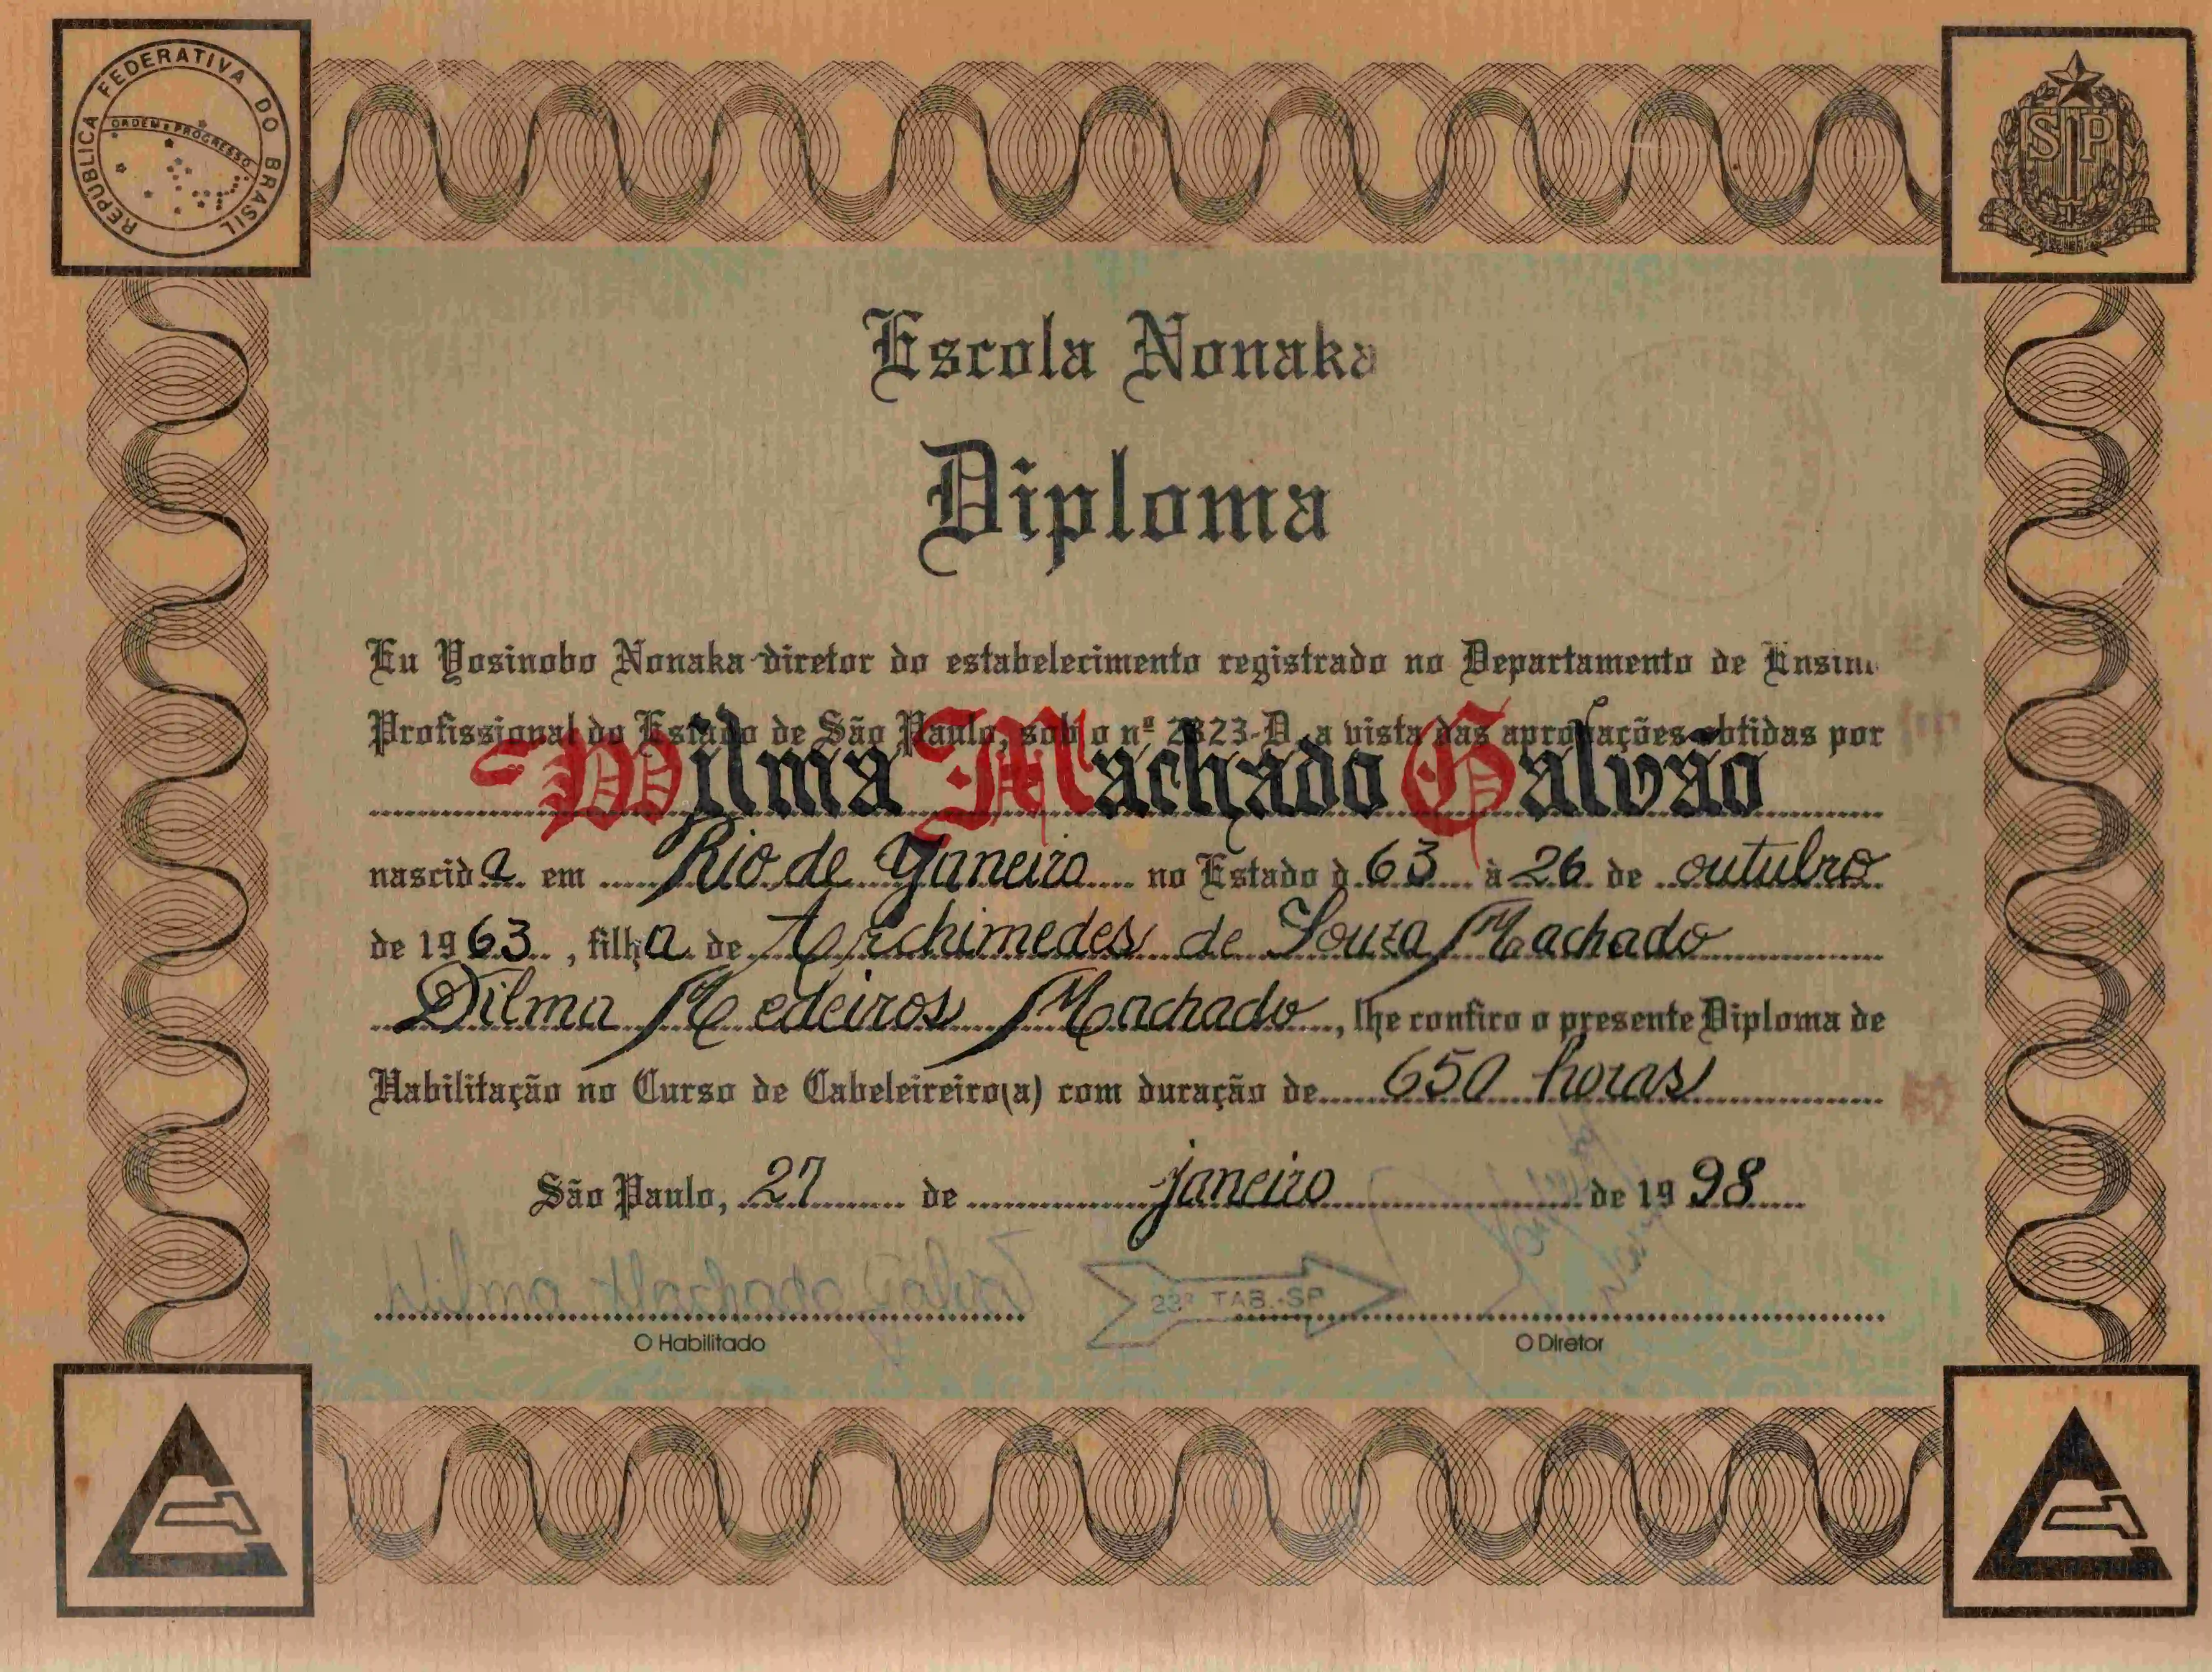 REPUBLICA FEDERATIVA DO BRASIL
ORDEM E PROGRESSO
SP
Escola Nonaka
Diploma
Eu Yosinobo Nonaka diretor do estabelecimento registrado no Departamento de Ensino
Profissional do Estado de São Paulo, sob o nº 2323-D, a vista das aprovações obtidas por
Wilma Machado Galvão
nascida em Rio de Janeiro no Estado d 63 à 26 de outubro
de 1963, filha de Archimedes de Souza Machado
Dilma Medeiros Machado, lhe confiro o presente Diploma de
Habilitação no Curso de Cabeleireiro(a) com duração de 650 horas
São Paulo, 27 de janeiro de 1998
Wilma Machado Galvão
23º TAB.-SP
O Habilitado
O Diretor